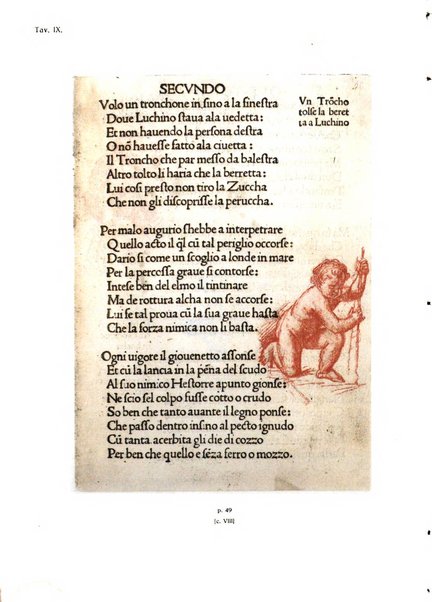 Tav. IX.
SECVNDO
Volo un tronchone in sino a la finestra
Doue Luchino staua ala uedetta:
Et non hauendo la persona destra
O nō hauesse fatto ala ciuetta:
Il Troncho che par messo da balestra
Altro tolto li haria che la berretta:
Lui cosi presto non tiro la Zuccha
Che non gli discoprisse la peruccha.
Vn Trōcho
tolse la beret
ta a Luchino
Per malo augurio shebbe a interpetrare
Quello acto il q̄l cū tal periglio occorse:
Dario si come un scoglio a londe in mare
Per la percossa graue si contorse:
Intese ben del elmo il tintinare
Ma de rottura alcha non se accorse:
Lui se tal proua cū la sua graue hasta
Che la forza nimica non li basta.
Ogni uigore il giouenetto assonse
Et cū la lancia in la pēna del scudo
Al suo nimico Hestorre apunto gionse:
Ne scio sel colpo fusse cotto o crudo
So ben che tanto auante il legno ponse:
Che passo dentro insino al pecto ignudo
Cū tanta acerbita gli die di cozzo
Per ben che quello e sēza ferro o mozzo.
p. 49
[c. VIII]